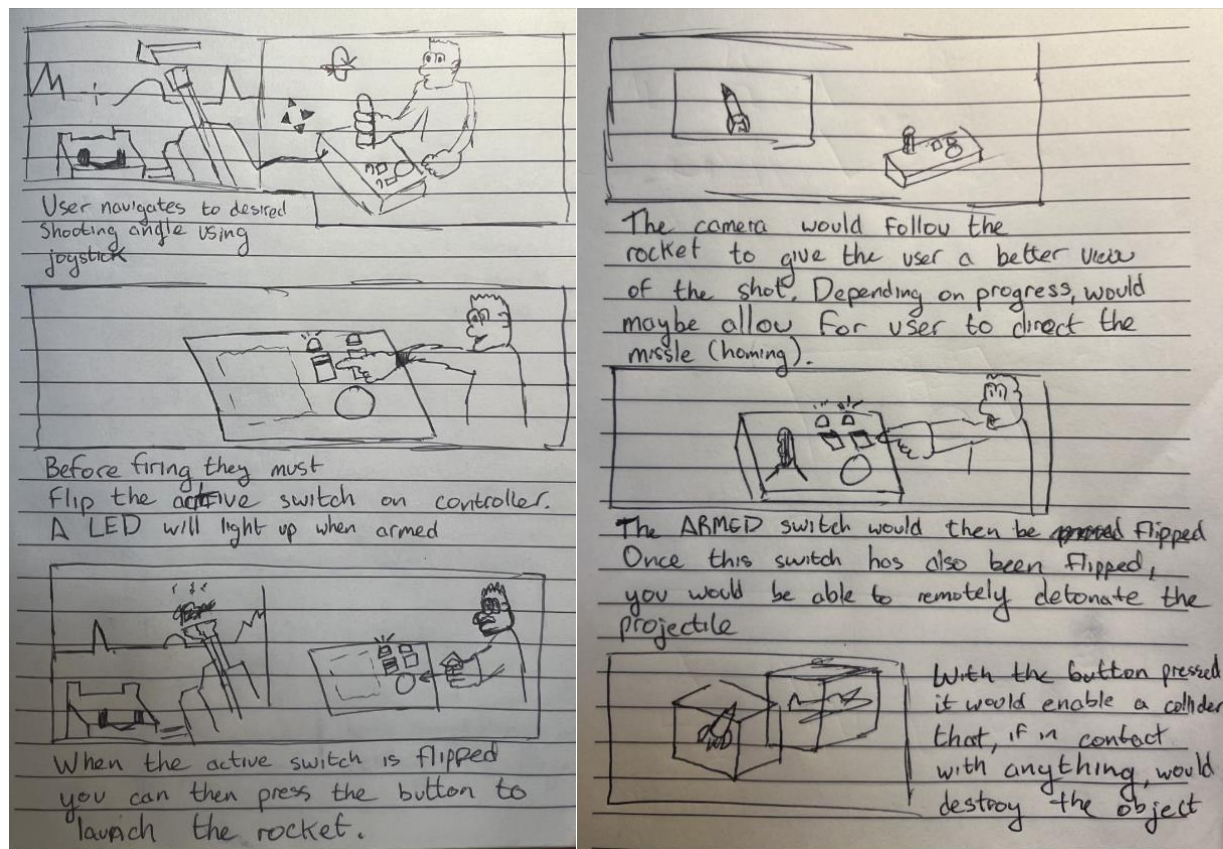 User navigates to desired
shooting angle using
joystick
Before firing they must
flip the active switch on controller.
A LED will light up when armed
When the active switch is flipped
you can then press the button to
launch the rocket.
The camera would follow the
rocket to give the user a better view
of the shot. Depending on progress, would
maybe allow for user to direct the
missle (homing).
The ARMED switch would then be flipped
Once this switch has also been flipped,
you would be able to remotely detonate the
projectile
With the button pressed
it would enable a collider
that, if in contact
with anything, would
destroy the object